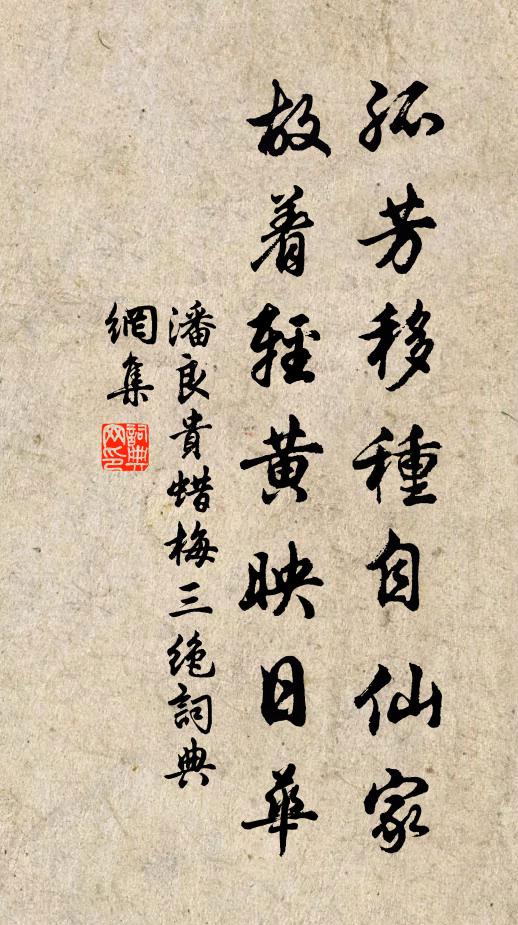 孤芳移種自仙家
故着輕黃映日華
潘良貴蜡梅三絶詞典
網集
詞典網印